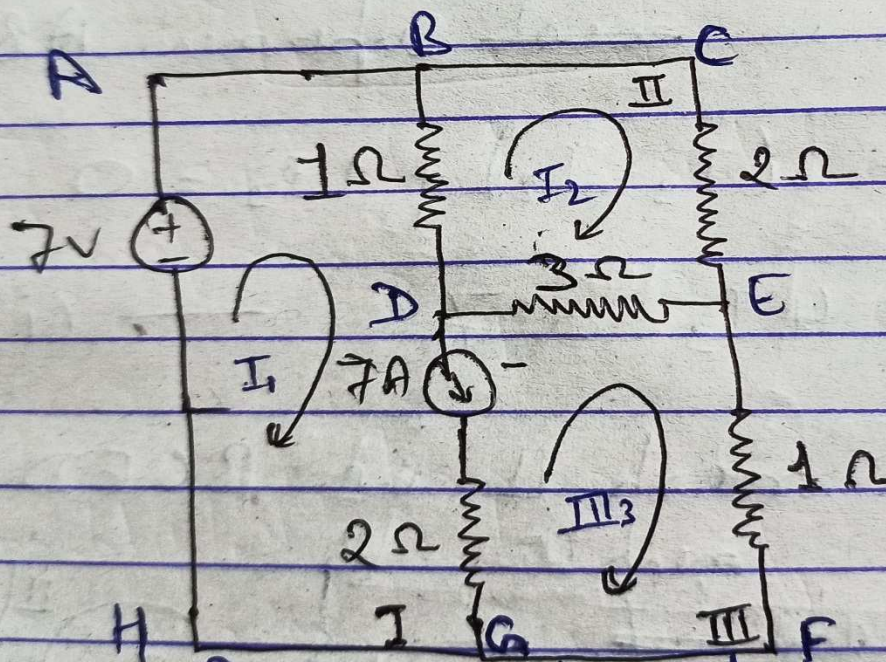 B
A
C
II
1 Ω
I₂
2 Ω
7V
+
-
3 Ω
D
E
I₁
7A
-
1 Ω
III₃
2 Ω
H
I
G
III
F